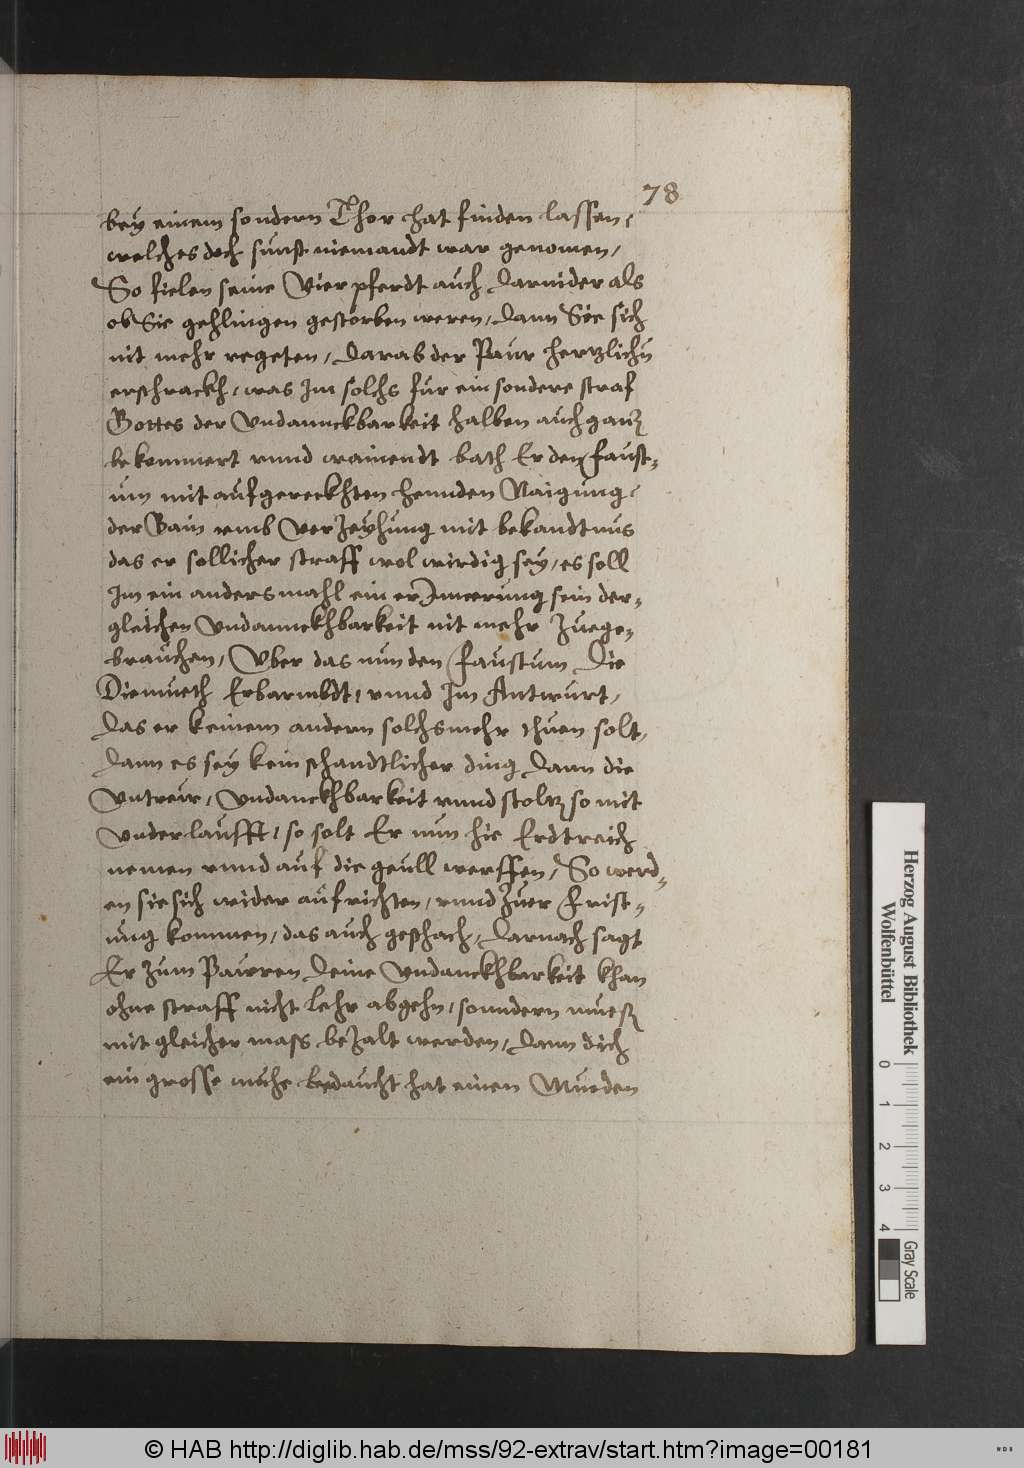 78
bey einem sondern Thor hat finden lassen,
welches doch sunst niemandt war genomen,
So fielen seine Vier pferdt auch darnider als
ob Sie gehlingen gestorben weren, dann Sie sich
nit mehr regeten, darab der Paur hertzlichn
erschrackh, was Im solchs fur ein sondere straf
Gottes der Vndannckbarkeit halben auch gantz
bekommert vnnd wainendt bath Er den Faust-
um mit aufgereckhten hennden Naigung
der Bain vmb Verzeyhung mit bekandtnus
das er sollicher straff wol wirdig sey, es soll
Im ein anders mahl ein erInnerung sein der-
gleichen Vndannckhbarkeit nit mehr Zuege-
brauchen, Vber das nun den Faustum die
Diemueth Erbarmbdt, vnnd Im Antwurt,
das er keinem andern solchs mehr thuen solt,
dann es sey kein schandtlicher ding dann die
Vntrew, Vndanckhbarkeit vnnd stoltz so mit
Vnderlaufft, so solt Er nun hie Erdtreich
nemen vnnd auf die geull werffen, So werd-
en sie sich wider aufrichten, vnnd Zuer Frist-
ung kommen, das auch geschach, darnach sagt
Er zum Pawren deine Vndanckhbarkeit khan
ohne straff nicht lehr abgehn, sonndern mueß
mit gleicher mass bezalt werden, dann dich
ein grosse muhe bedaucht hat einen Mueden
Herzog August Bibliothek
Wolfenbüttel
0 1 2 3 4
Gray Scale
© HAB http://diglib.hab.de/mss/92-extrav/start.htm?image=00181
WDB